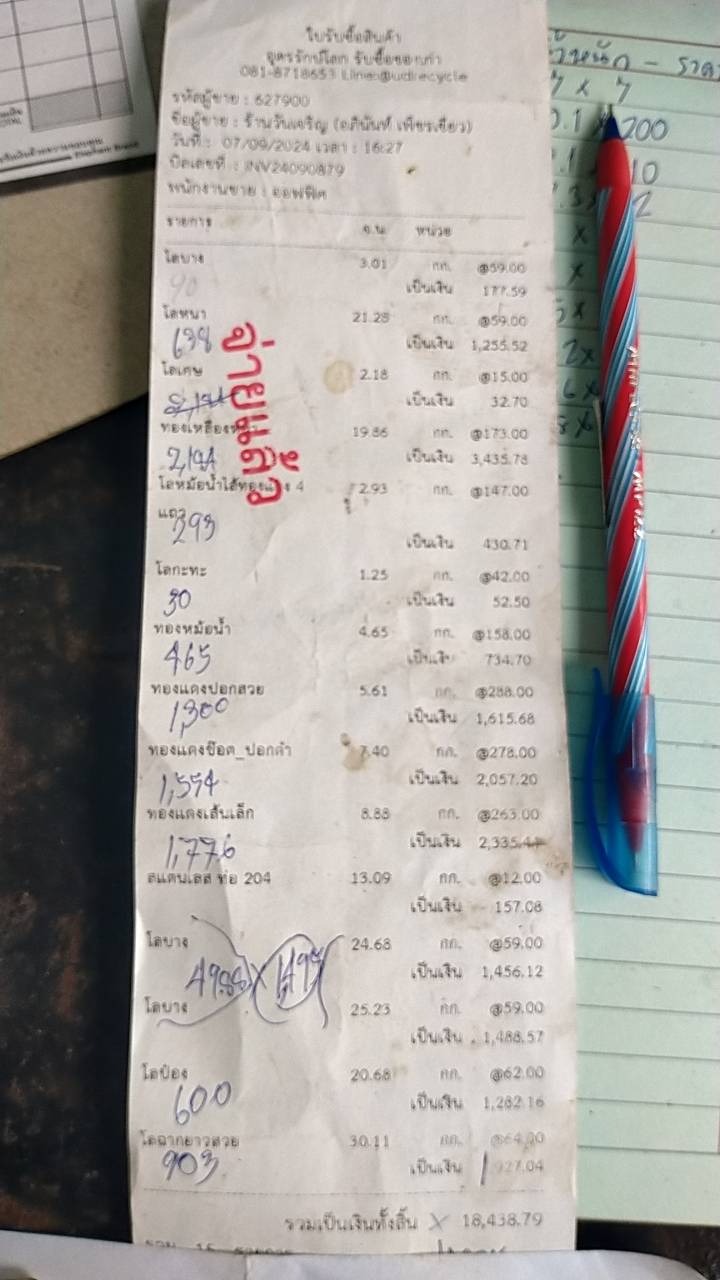 ใบรับซื้อสินค้า
อุดรรักษ์โลก รับซื้อของเก่า
081-8718653 Line:@udrecycle
รหัสผู้ขาย : 627900
ชื่อผู้ขาย : ร้านวันเจริญ (อภินันท์ เพียรเขียว)
วันที่ : 07/09/2024 เวลา : 16:27
บิลเลขที่ : INV24090879
พนักงานขาย : ออฟฟิศ
รายการ จ.น. หน่วย
โลบาง 3.01 กก. @59.00
90 เป็นเงิน 177.59
โลหนา 21.28 กก. @59.00
638 เป็นเงิน 1,255.52
โลเศษ 2.18 กก. @15.00
เป็นเงิน 32.70
ทองเหลืองหนา 19.86 กก. @173.00
เป็นเงิน 3,435.78
โลหม้อน้ำไส้ทองแดง 4 2.93 กก. @147.00
แถว
293 เป็นเงิน 430.71
โลกะทะ 1.25 กก. @42.00
30 เป็นเงิน 52.50
ทองหม้อน้ำ 4.65 กก. @158.00
465 เป็นเงิน 734.70
ทองแดงปอกสวย 5.61 กก. @288.00
1,300 เป็นเงิน 1,615.68
ทองแดงช๊อต_ปอกดำ 7.40 กก. @278.00
1,554 เป็นเงิน 2,057.20
ทองแดงเส้นเล็ก 8.88 กก. @263.00
1,776 เป็นเงิน 2,335.44
สแตนเลส ท่อ 204 13.09 กก. @12.00
เป็นเงิน 157.08
โลบาง 24.68 กก. @59.00
เป็นเงิน 1,456.12
โลบาง 25.23 กก. @59.00
เป็นเงิน 1,488.57
โลป๋อง 20.68 กก. @62.00
600 เป็นเงิน 1,282.16
โลฉากยาวสวย 30.11 กก. @64.00
903 เป็นเงิน 1,927.04
รวมเป็นเงินทั้งสิ้น 18,438.79
จ่ายแล้ว